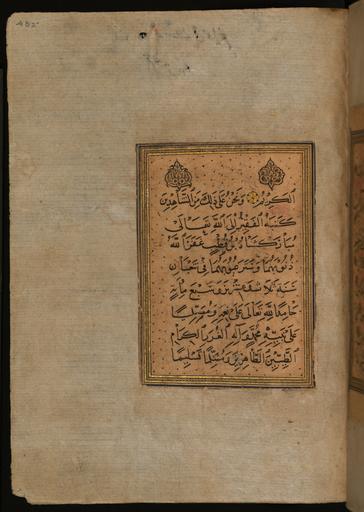 الكريم ونحن على ذلك من الشاهدين
كتبه الفقير إلى الله تعالى
مباركشاه بن قطب غفر الله
ذنوبهما وستر عيوبهما في شعبان
سنة ثلاث وعشرين وسبع مأية
حامدا لله تعالى على نعمه ومصليا
على نبيه محمد وآله الغرر الكرام
الطيبين الطاهرين ومسلما تسليما